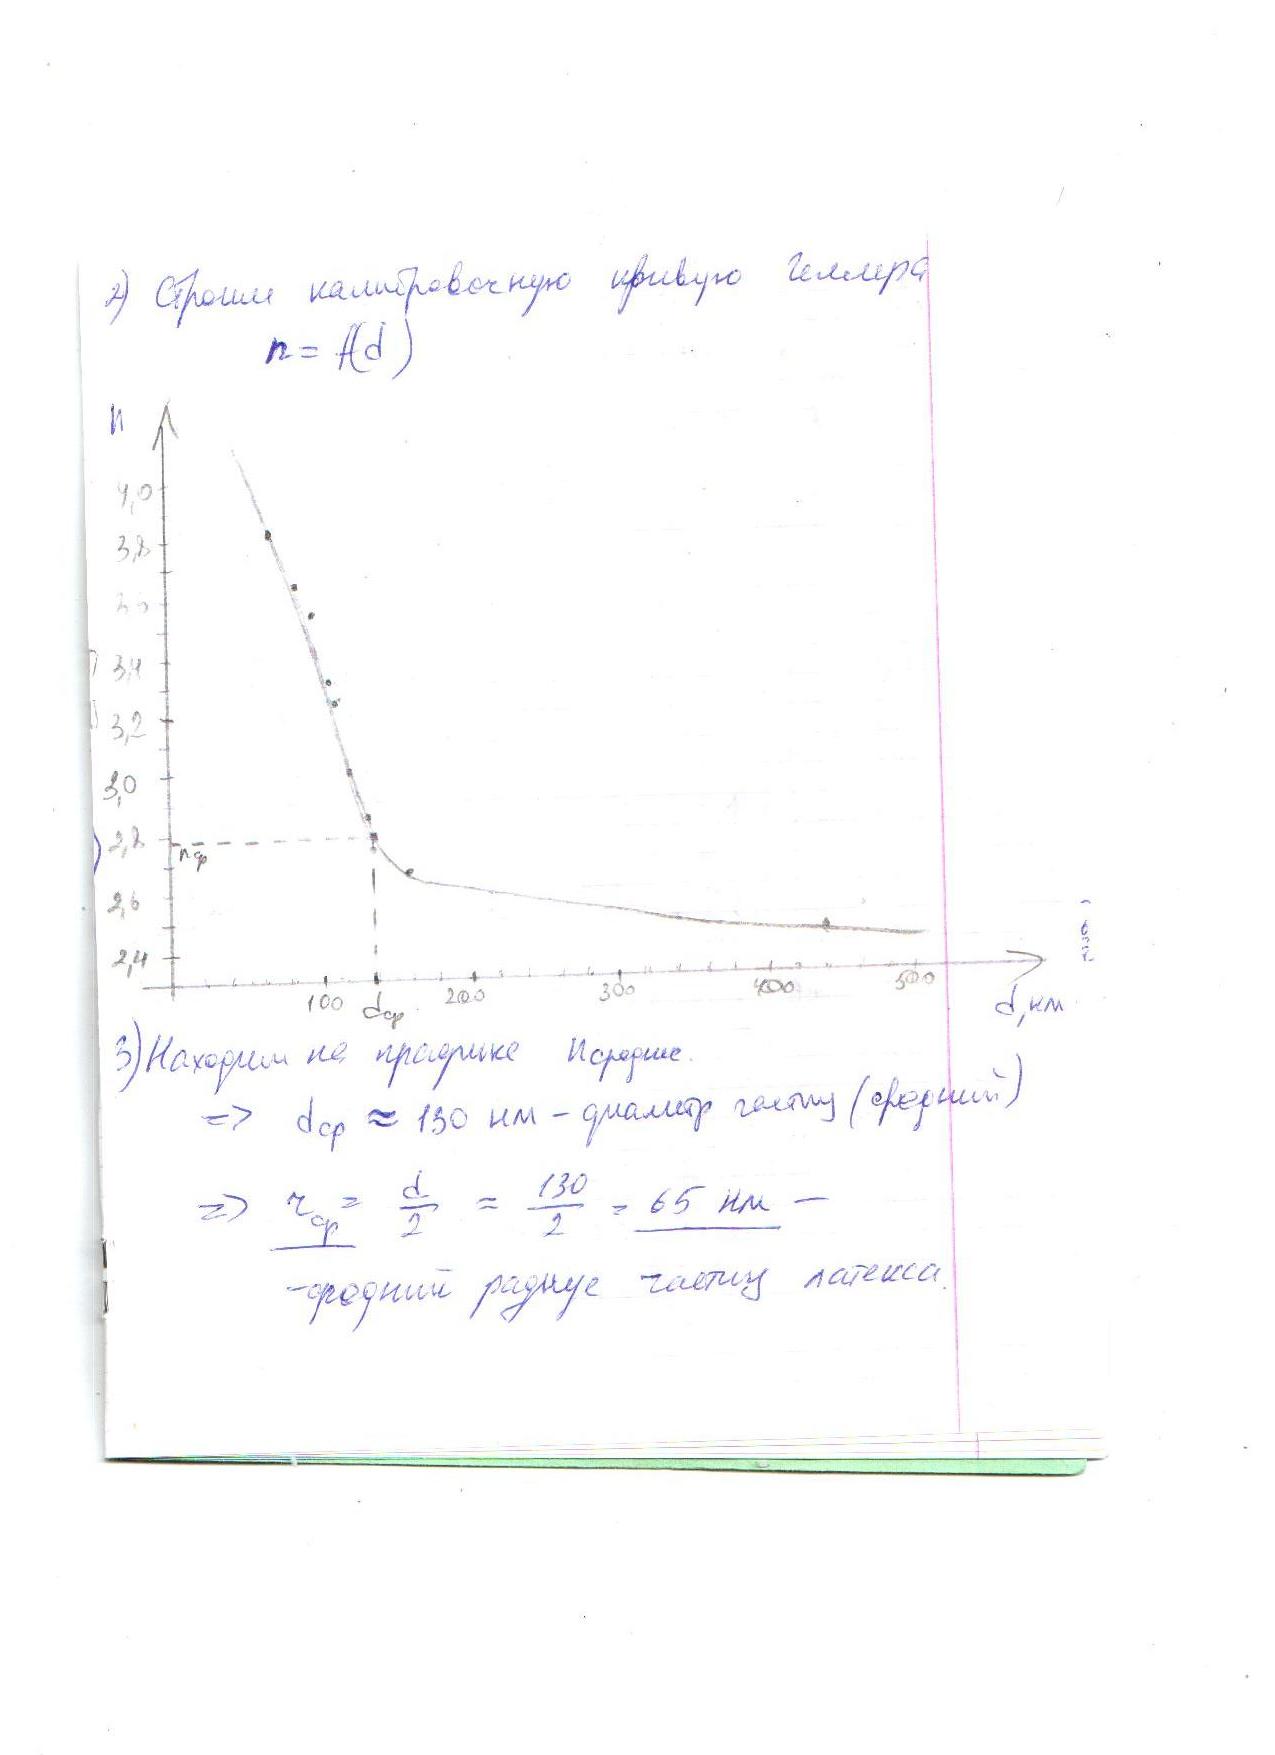 2) Строим калибровочную кривую Геллера
n = f(d)
n
4,0
3,8
3,6
3,4
3,2
3,0
2,8
nср
2,6
2,4
100 dср 200 300 400 500
d, нм
3) Находим на графике nсредние.
=> dср ≈ 130 нм – диаметр частиц (средний)
=> rср = d/2 = 130/2 = 65 нм –
– средний радиус частиц латекса.